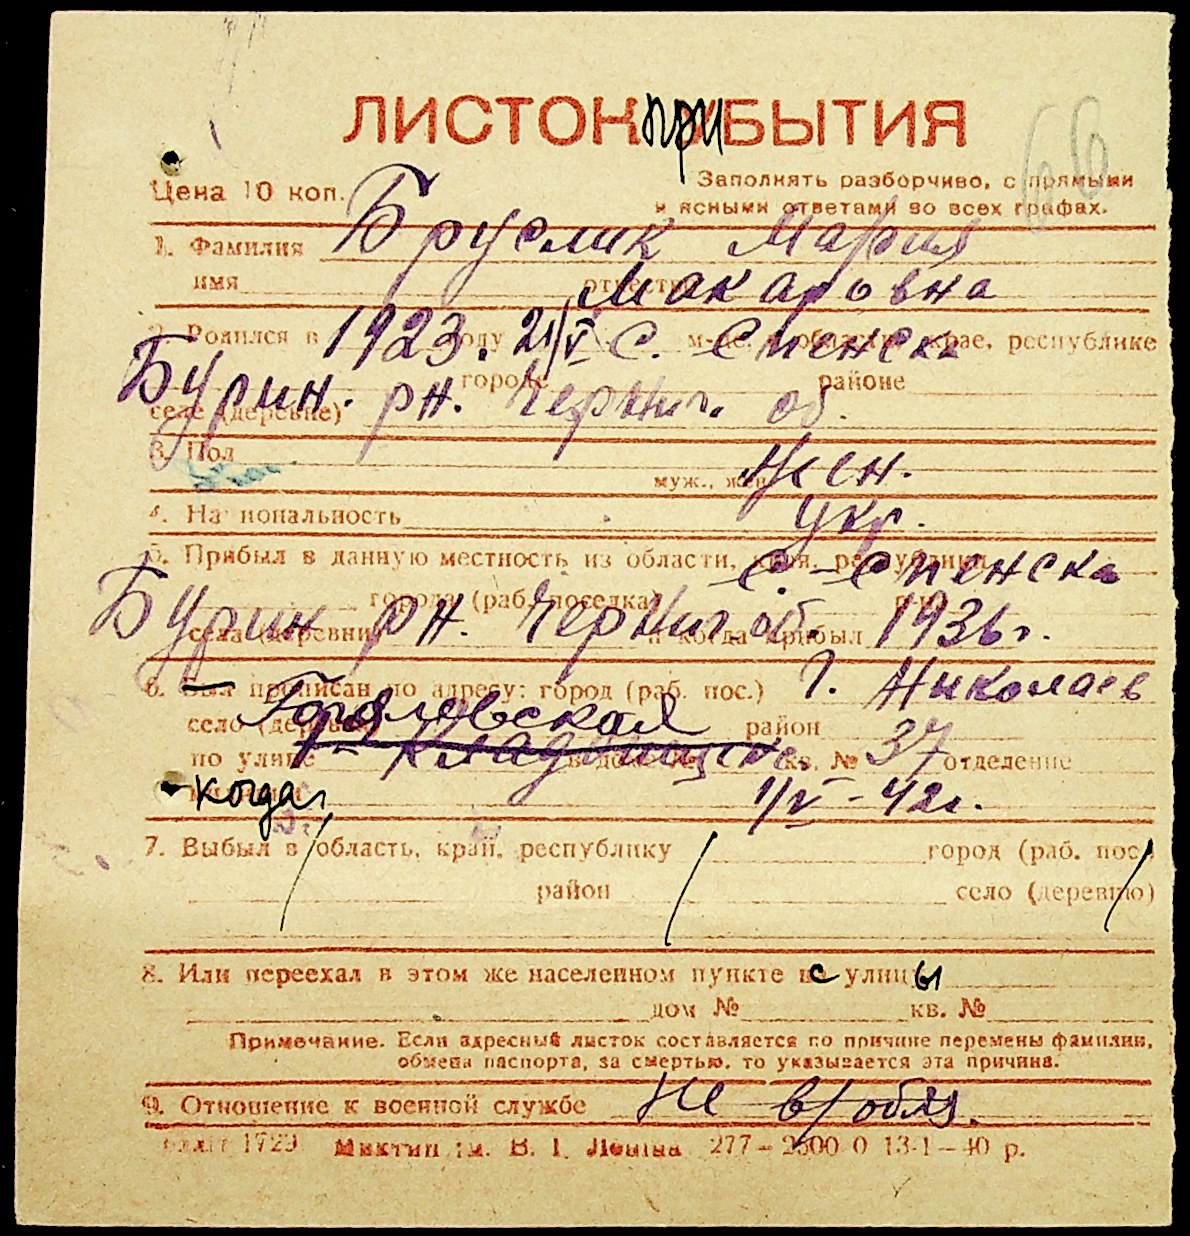 66
ЛИСТОК ПРИБЫТИЯ
Цена 10 коп.
Заполнять разборчиво, с прямыми
и ясными ответами во всех графах.
1. Фамилия Бруслик Мария
имя отчество Макаровна
2. Родился в 1923. году 21/V с. Спенска м-це, области, крае, республике
Бурин. рн. Черниг. об.
городе районе
селе (деревне)
3. Пол муж., жен. жен.
4. Национальность укр.
5. Прибыл в данную местность из области, края, республики с. Спенска
города (раб. поселка) р-на
Бурин рн. Черниг. об 1936 г.
села (деревни) и когда прибыл
6. Был прописан по адресу: город (раб. пос.) г. Николаев
село (деревня) Гоголевская район
по улице в доме № кв. № 37 отделение
милиции когда 1/V - 42 г.
7. Выбыл в область, край, республику город (раб. пос.)
район село (деревню)
8. Или переехал в этом же населенном пункте с улицы
дом № кв. №
Примечание. Если адресный листок составляется по причине перемены фамилии,
обмена паспорта, за смертью, то указывается эта причина.
9. Отношение к военной службе не в/обяз.
1729 им. В. І. Леніна 277–2500 0 13-1–40 р.